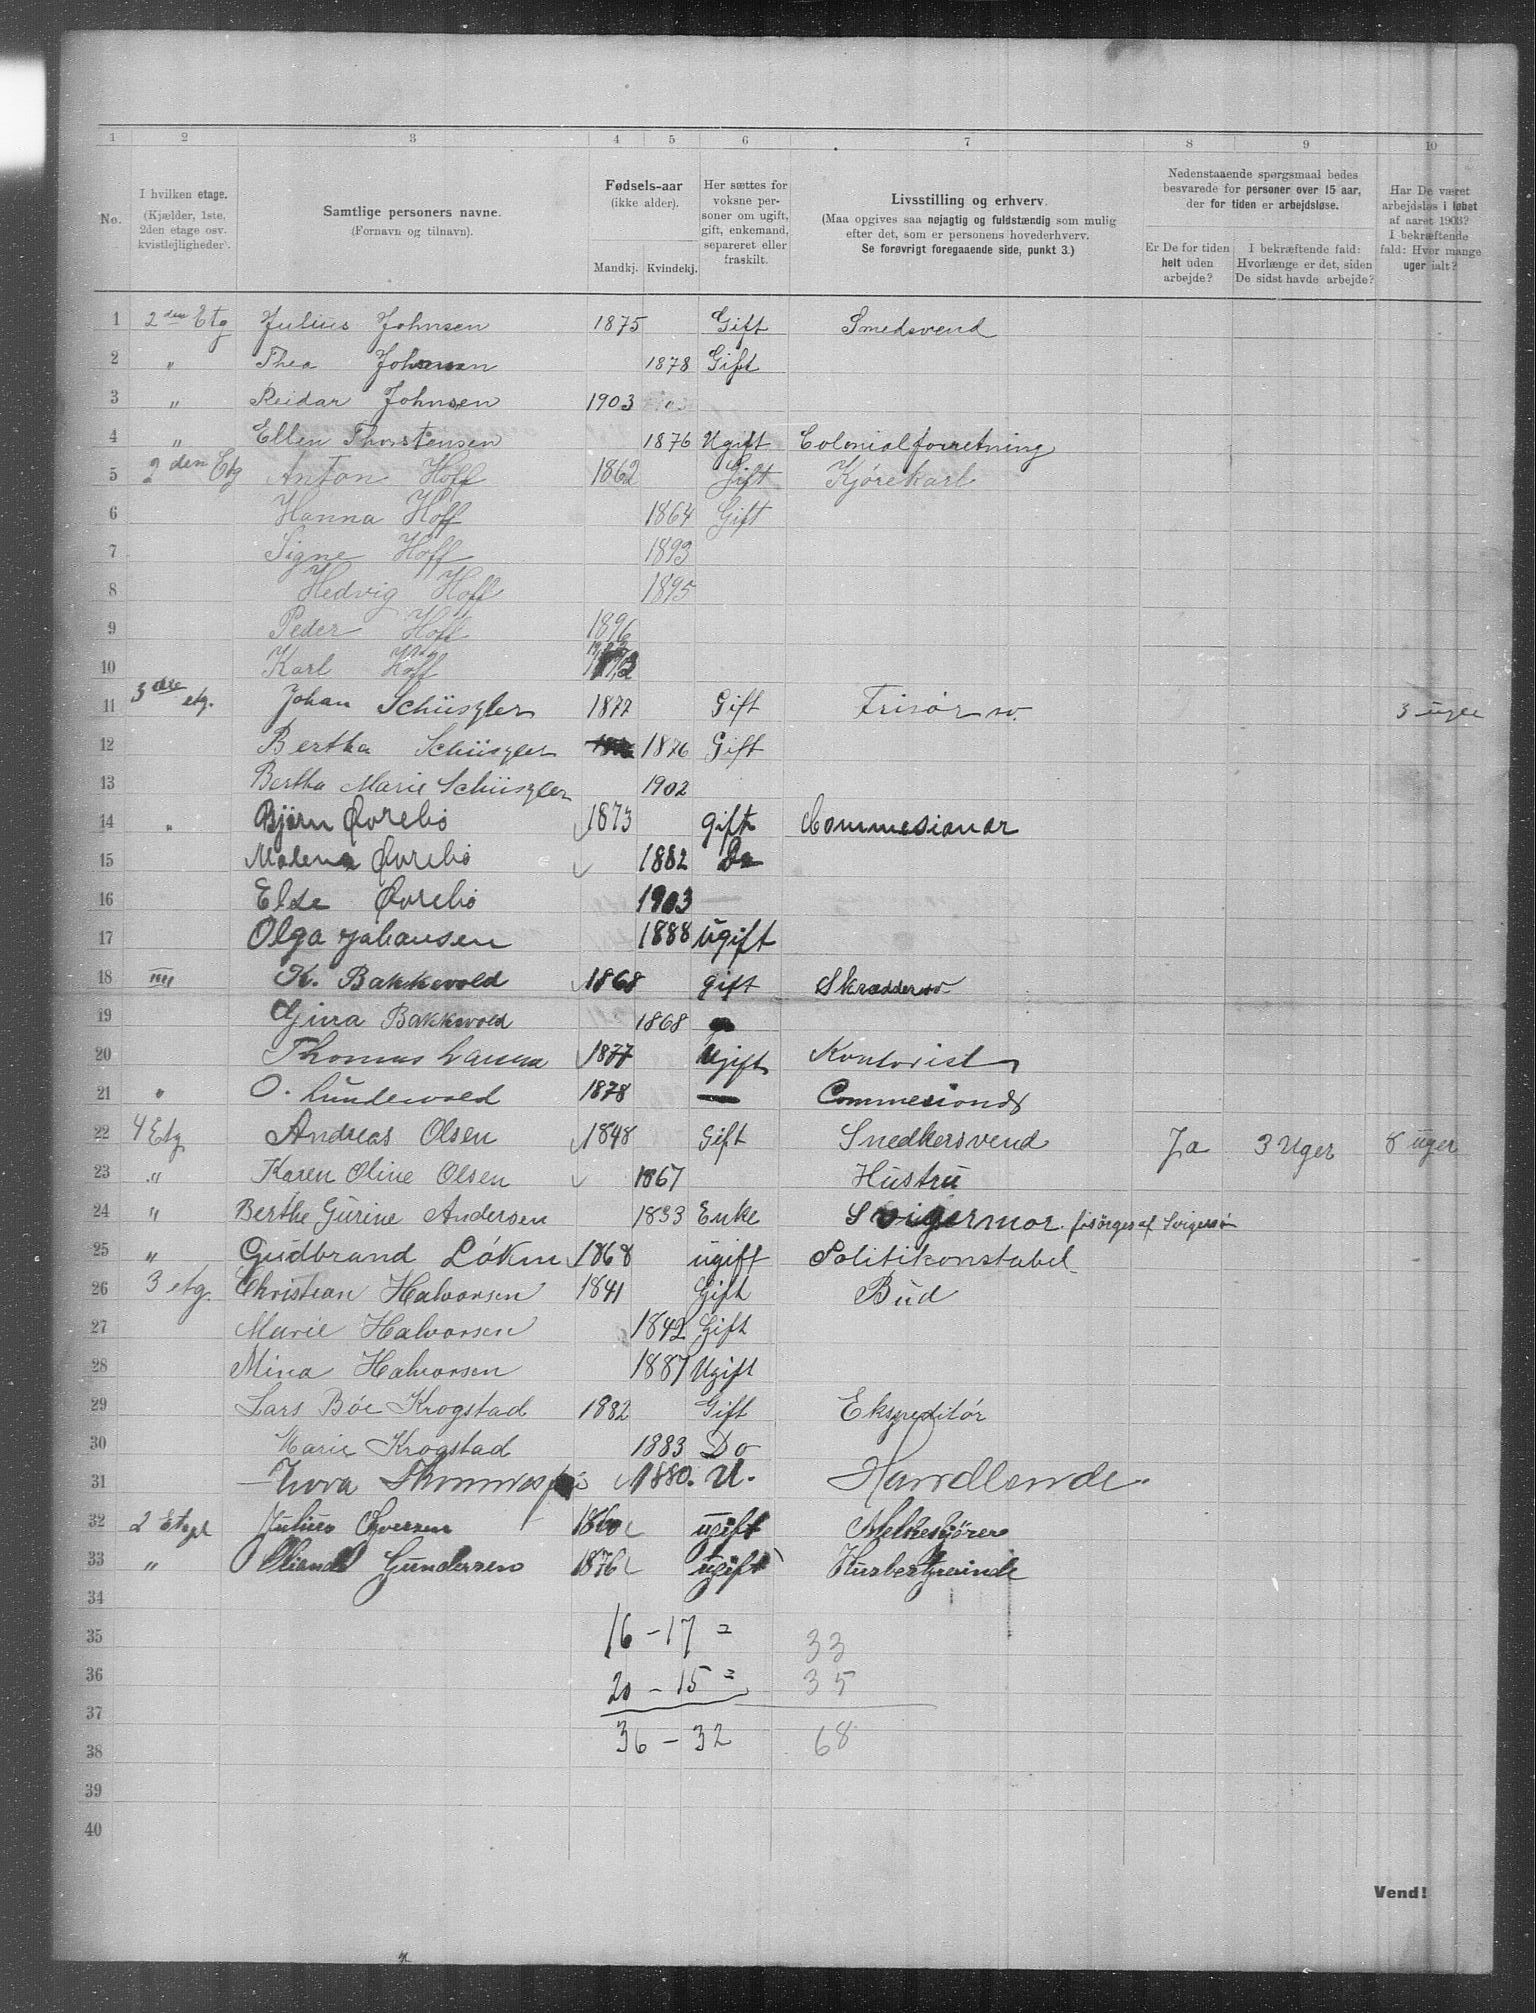 1 2 3 4 5 6 7 8 9 10
No.
I hvilken etage. (Kjælder, 1ste, 2den etage osv. kvistlejligheder).
Samtlige personers navne. (Fornavn og tilnavn).
Fødsels-aar (ikke alder).
Mandkj. Kvindekj.
Her sættes for voksne personer om ugift, gift, enkemand, separeret eller fraskilt.
Livsstilling og erhverv. (Maa opgives saa nøjagtig og fuldstændig som mulig efter det, som er personens hovederhverv. Se forøvrigt foregaaende side, punkt 3.)
Nedenstaaende spørgsmaal bedes besvarede for personer over 15 aar, der for tiden er arbejdsløse.
Er De for tiden helt uden arbejde?
I bekræftende fald: Hvorlænge er det, siden De sidst havde arbejde?
Har De været arbejdsløs i løbet af aaret 1903? I bekræftende fald: Hvor mange uger ialt?
1 2den Etg Julius Johnsen 1875 Gift Smedsvend
2 " Thea Johnsen 1878 Gift
3 " Reidar Johnsen 1903
4 " Ellen Thorstensen 1876 Ugift Colonialforretning
5 2den Etg Anton Hoff 1862 Gift Kjørekarl
6 Hanna Hoff 1864 Gift
7 Signe Hoff 1893
8 Hedvig Hoff 1895
9 Peder Hoff 1896
10 Karl Hoff
11 3die etg. Johan Schüszler 1877 Gift Frisør sv. 3 uger
12 Bertha Schüszler 1876 Gift
13 Bertha Marie Schüszler 1902
14 " Bjørn Øvrebø 1873 gift Commesionær
15 Malena Øvrebø 1882 Do
16 Else Øvrebø 1903
17 Olga Johansen 1888 ugift
18 "" K. Bakkevold 1868 gift Skræddersv.
19 Gina Bakkevold 1868
20 Thomas 1877 Ugift Kontorist
21 " O. Lundevold 1878 — Commesionær
22 4 Etg Andreas Olsen 1848 Gift Snedkersvend Ja 3 Uger 8 uger
23 " Karen Oline Olsen 1867 Hustru
24 " Berthe Gurine Andersen 1833 Enke Svigermor forsørges af Svigersøn
25 " Gudbrand Løken 1868 ugift Politikonstabel
26 3 etg. Christian Halvorsen 1841 Gift Bud
27 Marie Halvorsen 1842 Gift
28 Mina Halvorsen 1887 Ugift
29 Lars Bøe Krogstad 1882 Gift Ekspeditør
30 Marie Krogstad 1883 Do
31 1880. U. Handlende
32 2 Etage Julius Syversen 1860 ugift Melkekjører
33 " Gundersen 1876 ugift Husbestyrerinde
34
35 16 - 17 = 33
36 20 - 15 = 35
37
38 36 - 32 68
39
40
Vend!